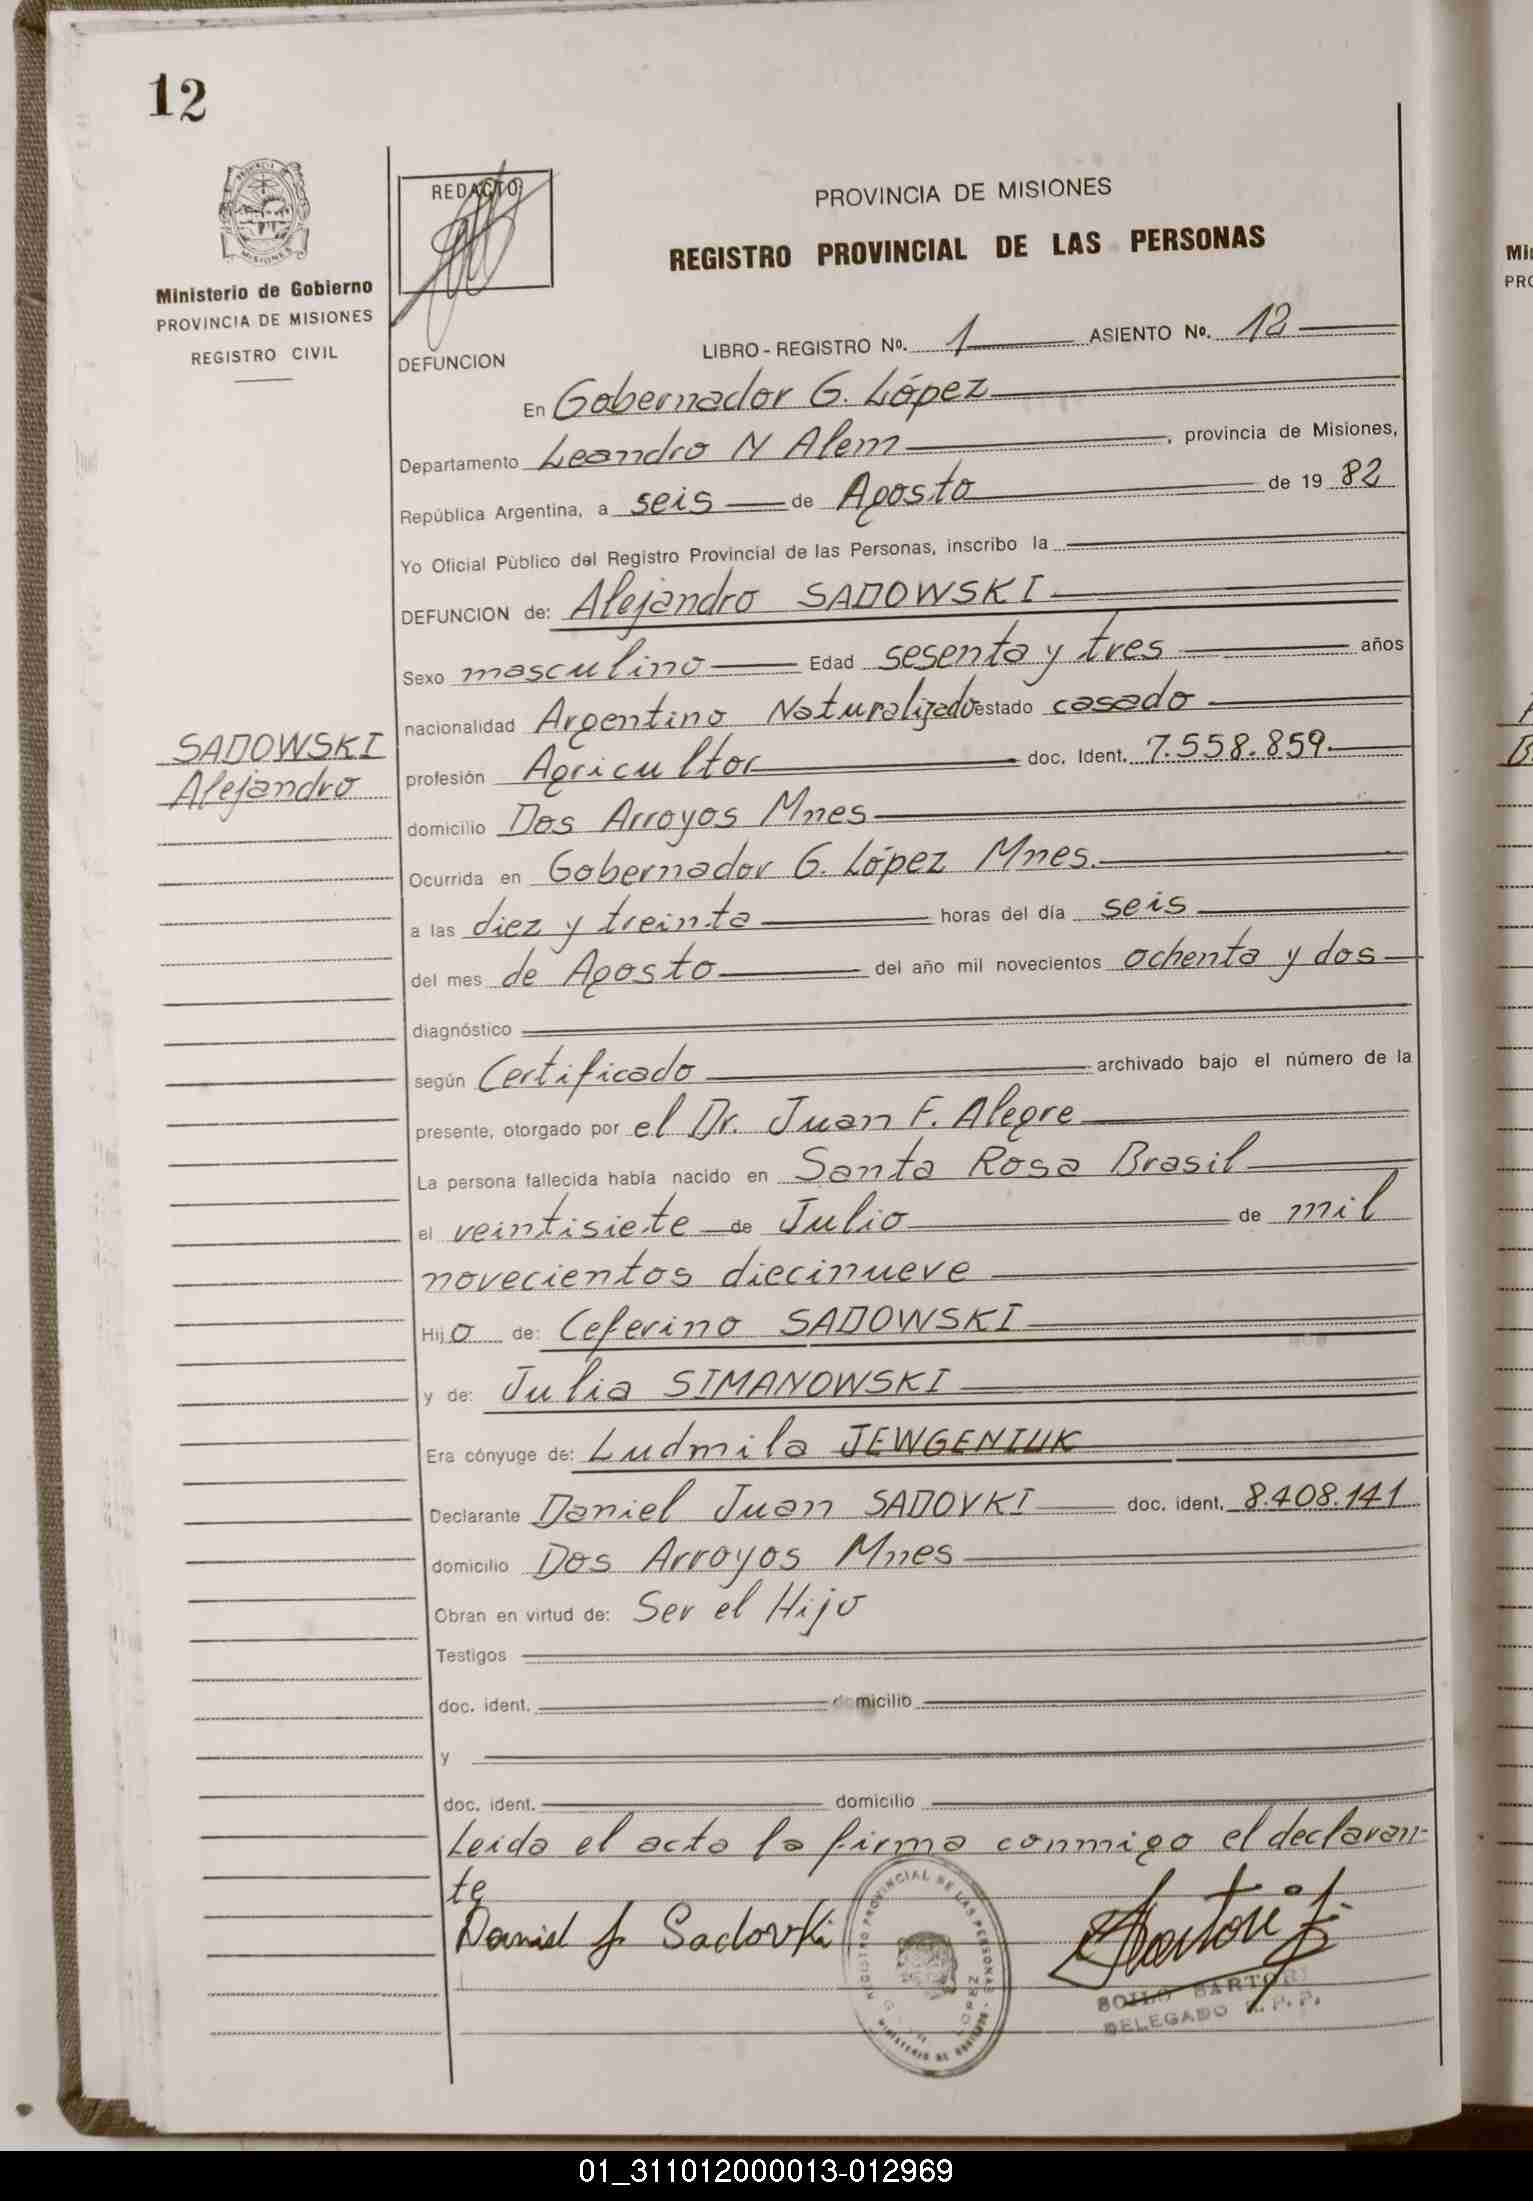 12
PROVINCIA
MISIONES
Ministerio de Gobierno
PROVINCIA DE MISIONES
REGISTRO CIVIL
REDACTO
PROVINCIA DE MISIONES
REGISTRO PROVINCIAL DE LAS PERSONAS
DEFUNCION LIBRO - REGISTRO Nº. 1 ASIENTO Nº. 12
En Gobernador G. López
Departamento Leandro N Alem, provincia de Misiones,
República Argentina, a seis de Agosto de 19 82
Yo Oficial Público del Registro Provincial de las Personas, inscribo la
DEFUNCION de: Alejandro SADOWSKI
Sexo masculino Edad sesenta y tres años
nacionalidad Argentino Naturalizado estado casado
SADOWSKI
Alejandro
profesión Agricultor doc. Ident. 7.558.859.
domicilio Dos Arroyos Mnes
Ocurrida en Gobernador G. López Mnes.
a las diez y treinta horas del día seis
del mes de Agosto del año mil novecientos ochenta y dos
diagnóstico
según Certificado archivado bajo el número de la
presente, otorgado por el Dr. Juan F. Alegre
La persona fallecida había nacido en Santa Rosa Brasil
el veintisiete de Julio de mil
novecientos diecinueve
Hijo de: Ceferino SADOWSKI
y de: Julia SIMANOWSKI
Era cónyuge de: Ludmila JEWGENIUK
Declarante Daniel Juan SADOVKI doc. ident. 8.408.141
domicilio Dos Arroyos Mnes
Obran en virtud de: Ser el Hijo
Testigos
doc. ident. domicilio
y
doc. ident. domicilio
Leida el acta la firma conmigo el declaran-
te
Daniel J. Sadovki
REGISTRO PROVINCIAL DE LAS PERSONAS
MINISTERIO DE GOBIERNO
G. LOPEZ
SARTORI
DELEGADO R.P.P.
01_311012000013-012969